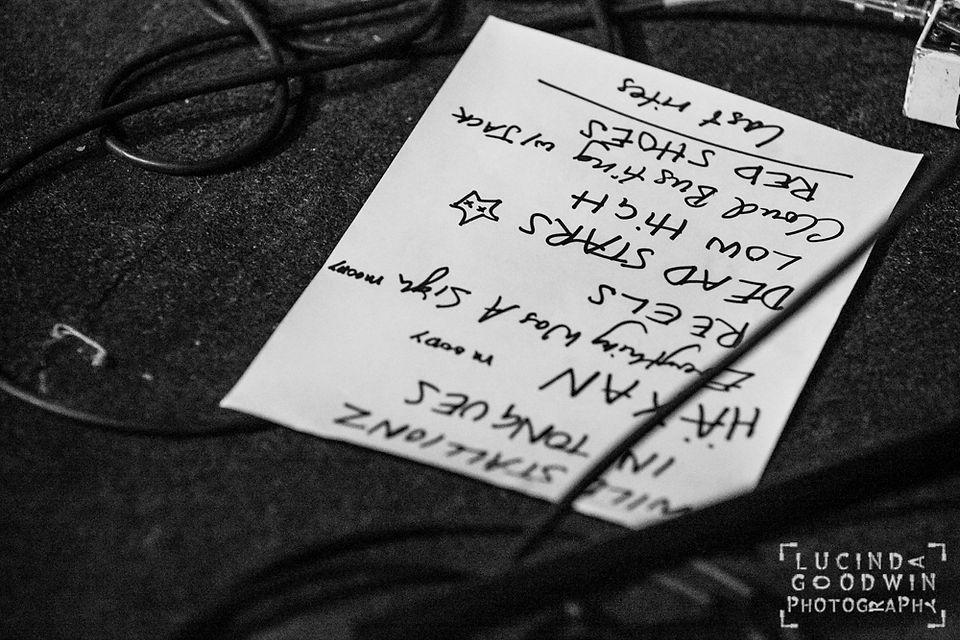 WILD STALLIONZ
IN TONGUES
HÄKAN moody
Everything Was A Sigh moody
REELS
DEAD STARS
LOW HIGH
Cloud Busting w/ JACK
RED SHOES
Last rites
LUCINDA
GOODWIN
PHOTOGRAPHY